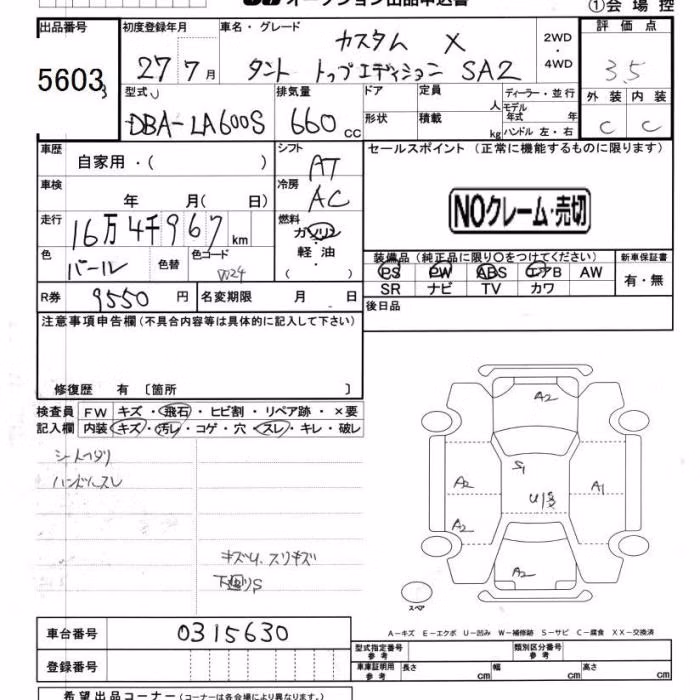 オークション出品申込書
①会場控
出品番号
5603
3
初度登録年月
27 7月
車名・グレード
カスタム X
タント トップエディション SA2
2WD
・
4WD
評価点
3.5
外装 内装
C C
型式
DBA-LA600S
排気量
660 cc
ドア
形状
定員
人
積載
kg
ディーラー・並行
モデル年式 年
ハンドル 左・右
車歴
自家用・( )
シフト
AT
セールスポイント(正常に機能するものに限ります)
NOクレーム・売切
車検
年 月( 日)
冷房
AC
走行
16万4千967km
燃料
ガソリン
軽・油
・( )
色
パール
色替
色コード
W24
装備品(純正品に限り○をつけてください)
PS PW ABS エアB AW
SR ナビ TV カワ
新車保証書
有・無
R券
9550円
名変期限 月 日
後日品
注意事項申告欄(不具合内容等は具体的に記入して下さい)
修復歴 有〔箇所 〕
検査員
記入欄
FW キズ・飛石・ヒビ割・リペア跡・×要
内装 キズ・汚レ・コゲ・穴・スレ・キレ・破レ
シートヘタリ
ハンドルスレ
キズU、スリキズ
下廻りS
A2
S1
A2
U1多
A1
A2
A2
スペア
A-キズ E-エクボ U-凹み W-補修跡 S-サビ C-腐食 XX-交換済
車台番号
0315630
登録番号
型式指定番号
参考
類別区分番号
参考
車庫証明用
参考
長さ cm 幅 cm 高さ cm
希望出品コーナー(コーナーは各会場により異なります。)